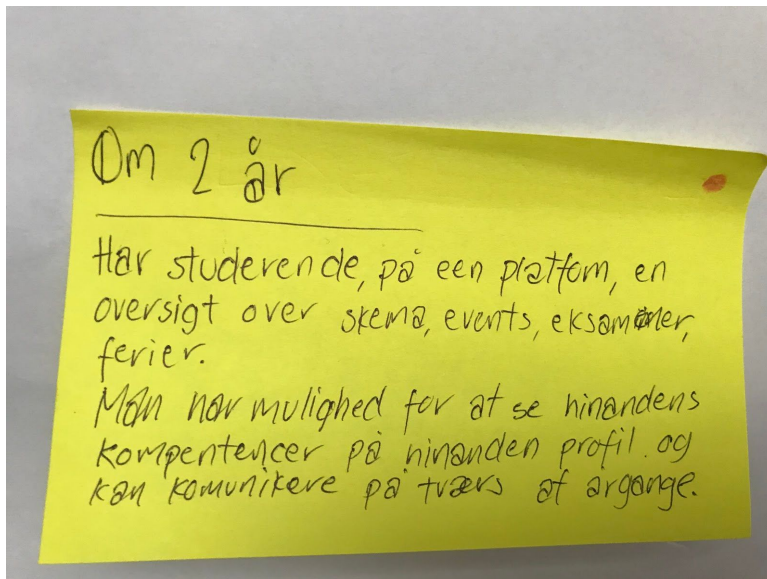 Om 2 år
Har studerende, på een platfom, en
oversigt over skema, events, eksamener,
ferier.
Man har mulighed for at se hinandens
kompentencer på hinanden profil. og
kan komunikere på tværs af argange.